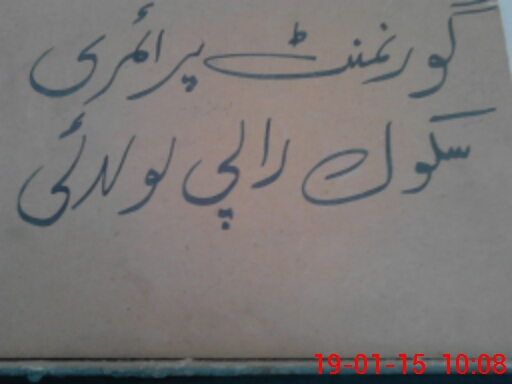 گورنمنٹ پرائمری
سکول رالپی لولدئی
19-01-15 10:08